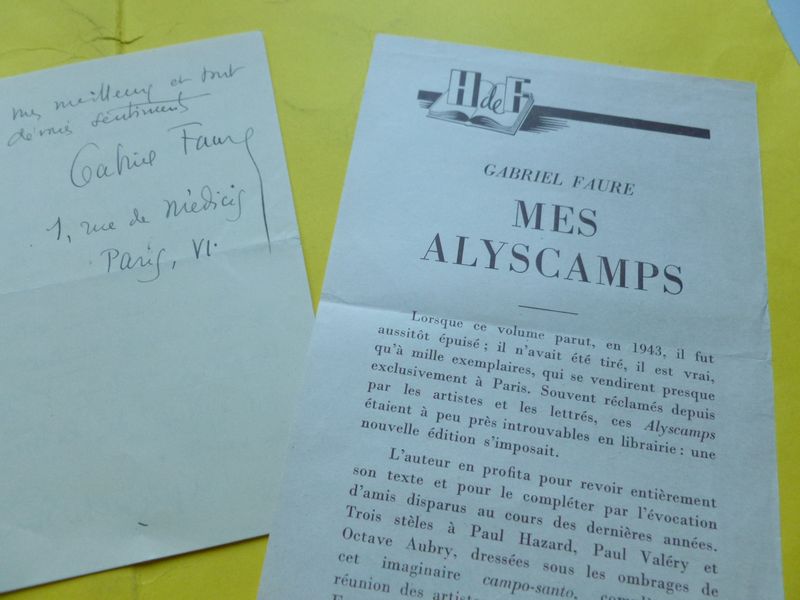 mes meilleurs et tout
dévoués sentiments
Gabriel Faure
1, rue de Médicis
Paris, VI.
H de F
GABRIEL FAURE
MES
ALYSCAMPS
Lorsque ce volume parut, en 1943, il fut
aussitôt épuisé ; il n'avait été tiré, il est vrai,
qu'à mille exemplaires, qui se vendirent presque
exclusivement à Paris. Souvent réclamés depuis
par les artistes et les lettrés, ces Alyscamps
étaient à peu près introuvables en librairie : une
nouvelle édition s'imposait.
L'auteur en profita pour revoir entièrement
son texte et pour le compléter par l'évocation
d'amis disparus au cours des dernières années.
Trois stèles à Paul Hazard, Paul Valéry et
Octave Aubry, dressées sous les ombrages de
cet imaginaire campo-santo,
réunion des artistes